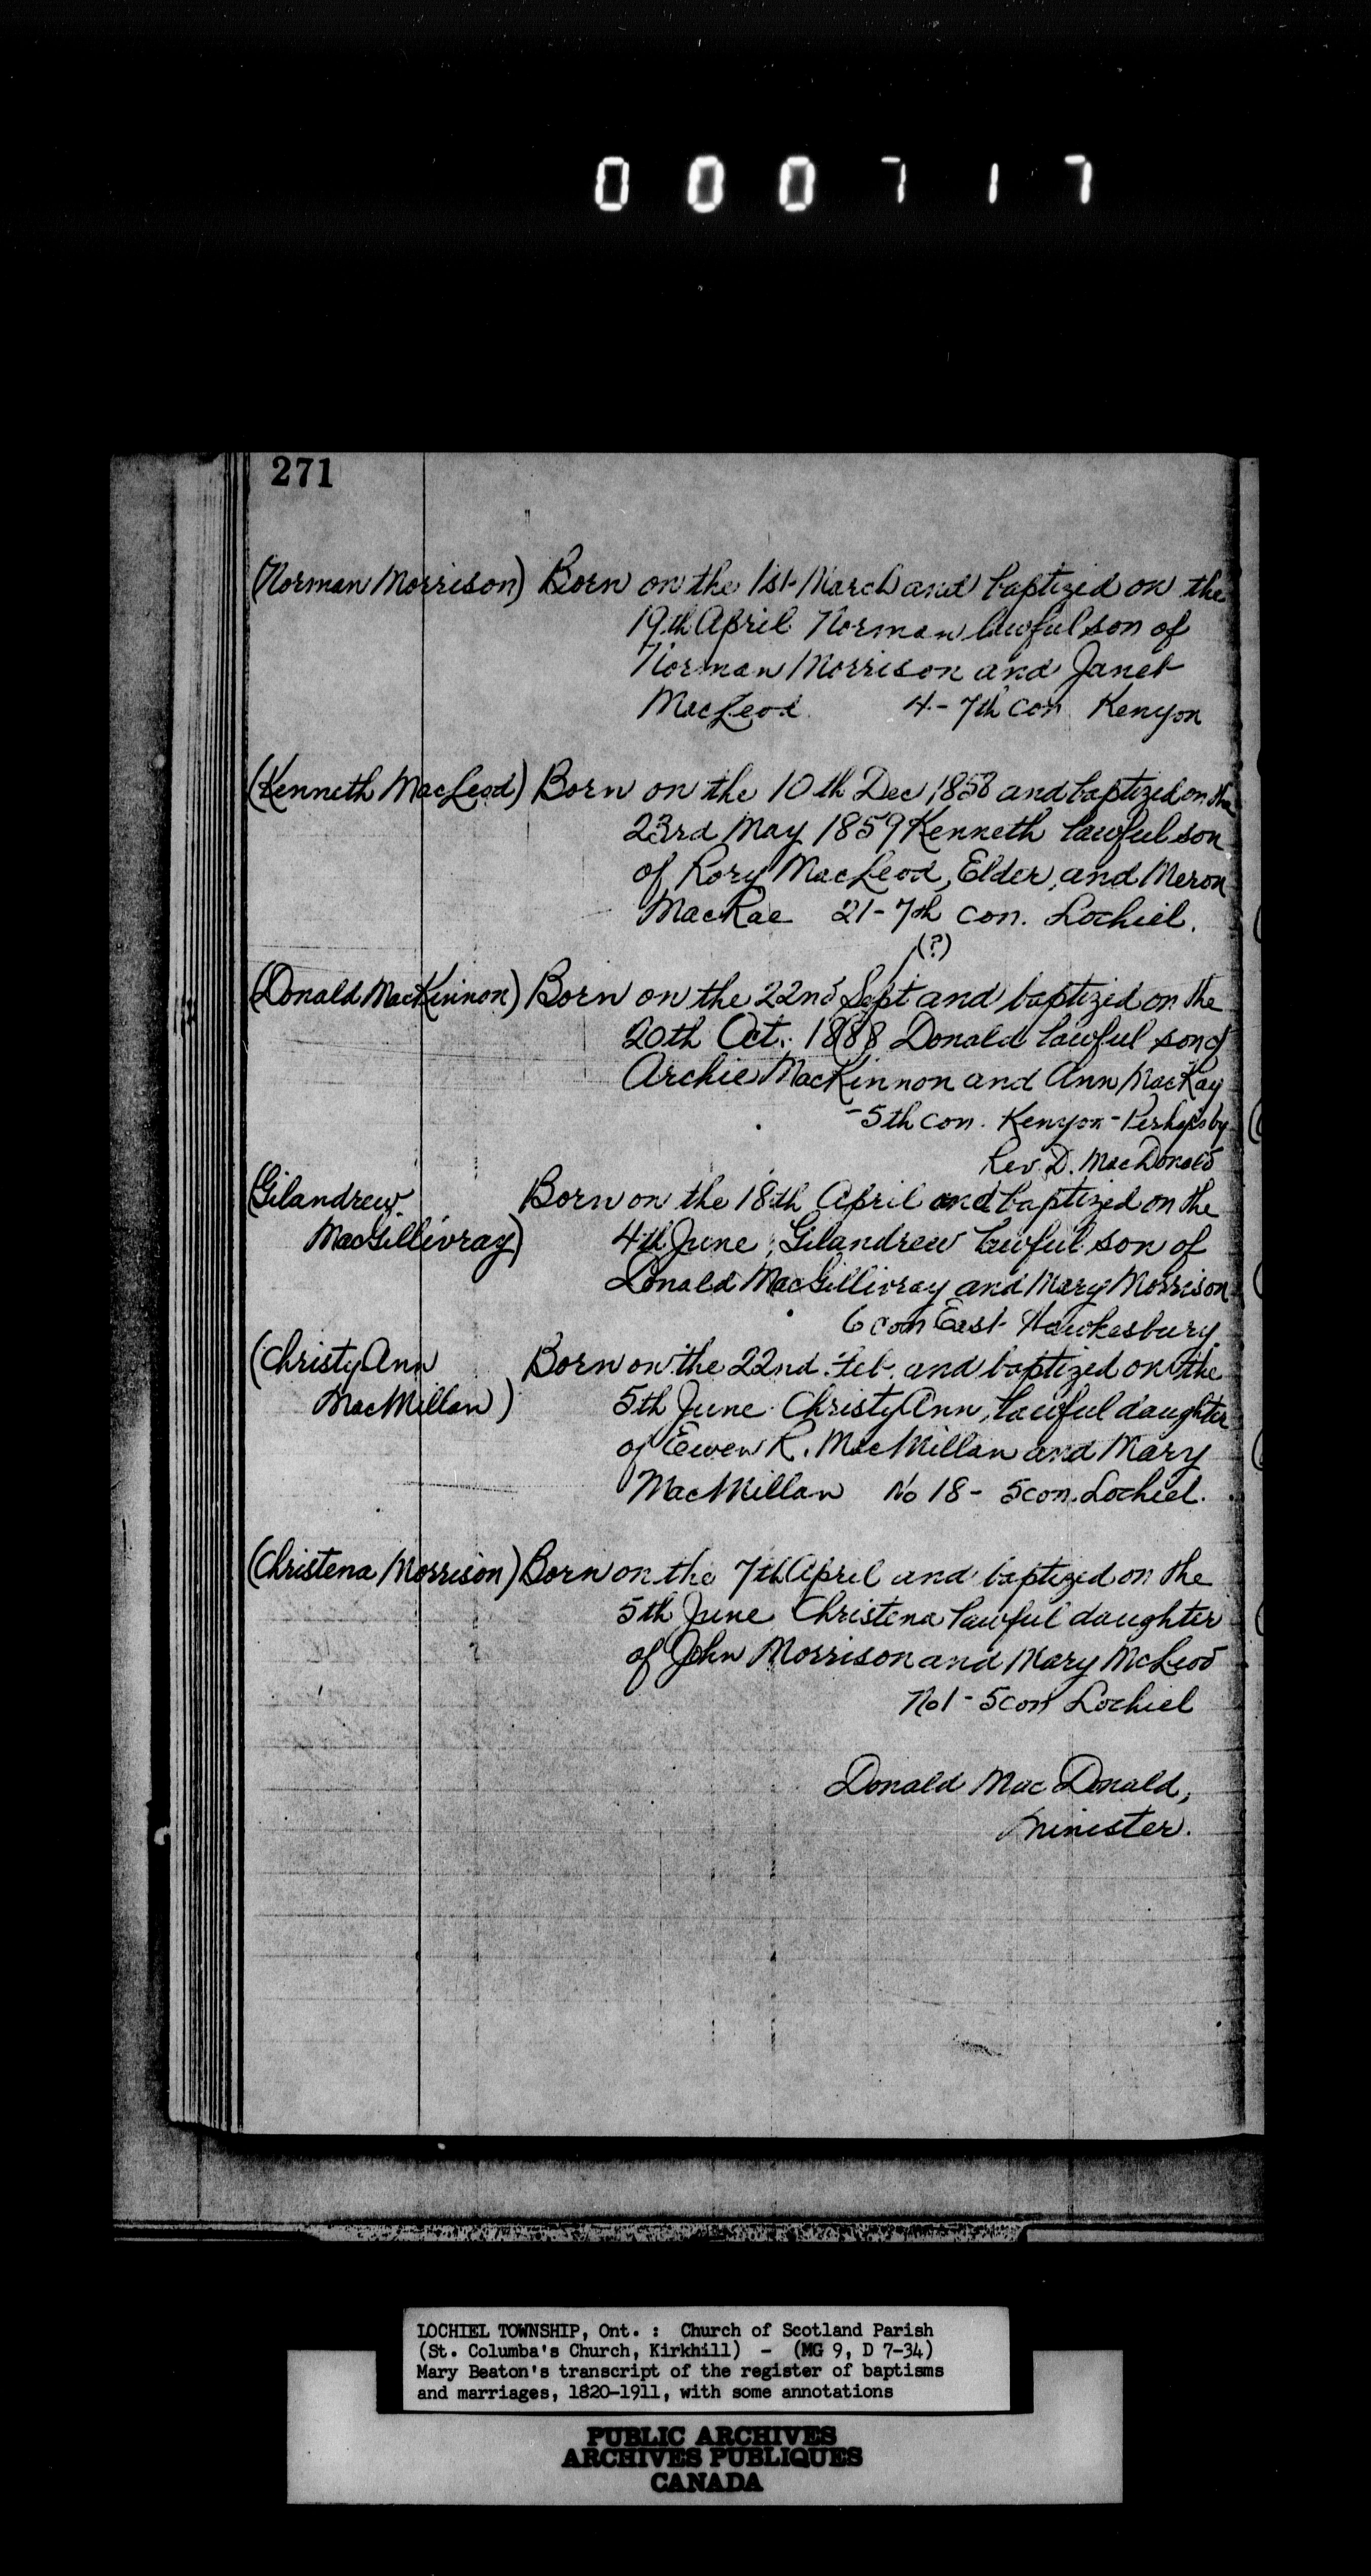 000717
271
(Norman Morrison) Born on the 1st March and baptized on the
19th April Norman lawful son of
Norman Morrison and Janet
MacLeod. 4 - 7th con Kenyon
(Kenneth MacLeod) Born on the 10th Dec 1858 and baptized on the
23rd May 1859 Kenneth lawful son
of Rory MacLeod, Elder, and Meron
MacRae 21 - 7th con. Lochiel.
(?)
(Donald MacKinnon) Born on the 22nd Sept and baptized on the
20th Oct. 1888 Donald lawful son of
Archie MacKinnon and Ann MacKay
- 5th con. Kenyon - Perhaps by
Rev. D. MacDonald
(Gilandrew Born on the 18th April and baptized on the
MacGillivray) 4th June, Gilandrew lawful son of
Donald MacGillivray and Mary Morrison
6 con East Hawkesbury
(Christy Ann Born on the 22nd Feb. and baptized on the
MacMillan) 5th June Christy Ann, lawful daughter
of Ewen R. MacMillan and Mary
MacMillan No 18 - 5 con. Lochiel.
(Christena Morrison) Born on the 7th April and baptized on the
5th June Christena lawful daughter
of John Morrison and Mary McLeod
No 1 - 5 con Lochiel
Donald Mac Donald,
Minister.
LOCHIEL TOWNSHIP, Ont. : Church of Scotland Parish
(St. Columba's Church, Kirkhill) - (MG 9, D 7-34)
Mary Beaton's transcript of the register of baptisms
and marriages, 1820-1911, with some annotations
PUBLIC ARCHIVES
ARCHIVES PUBLIQUES
CANADA